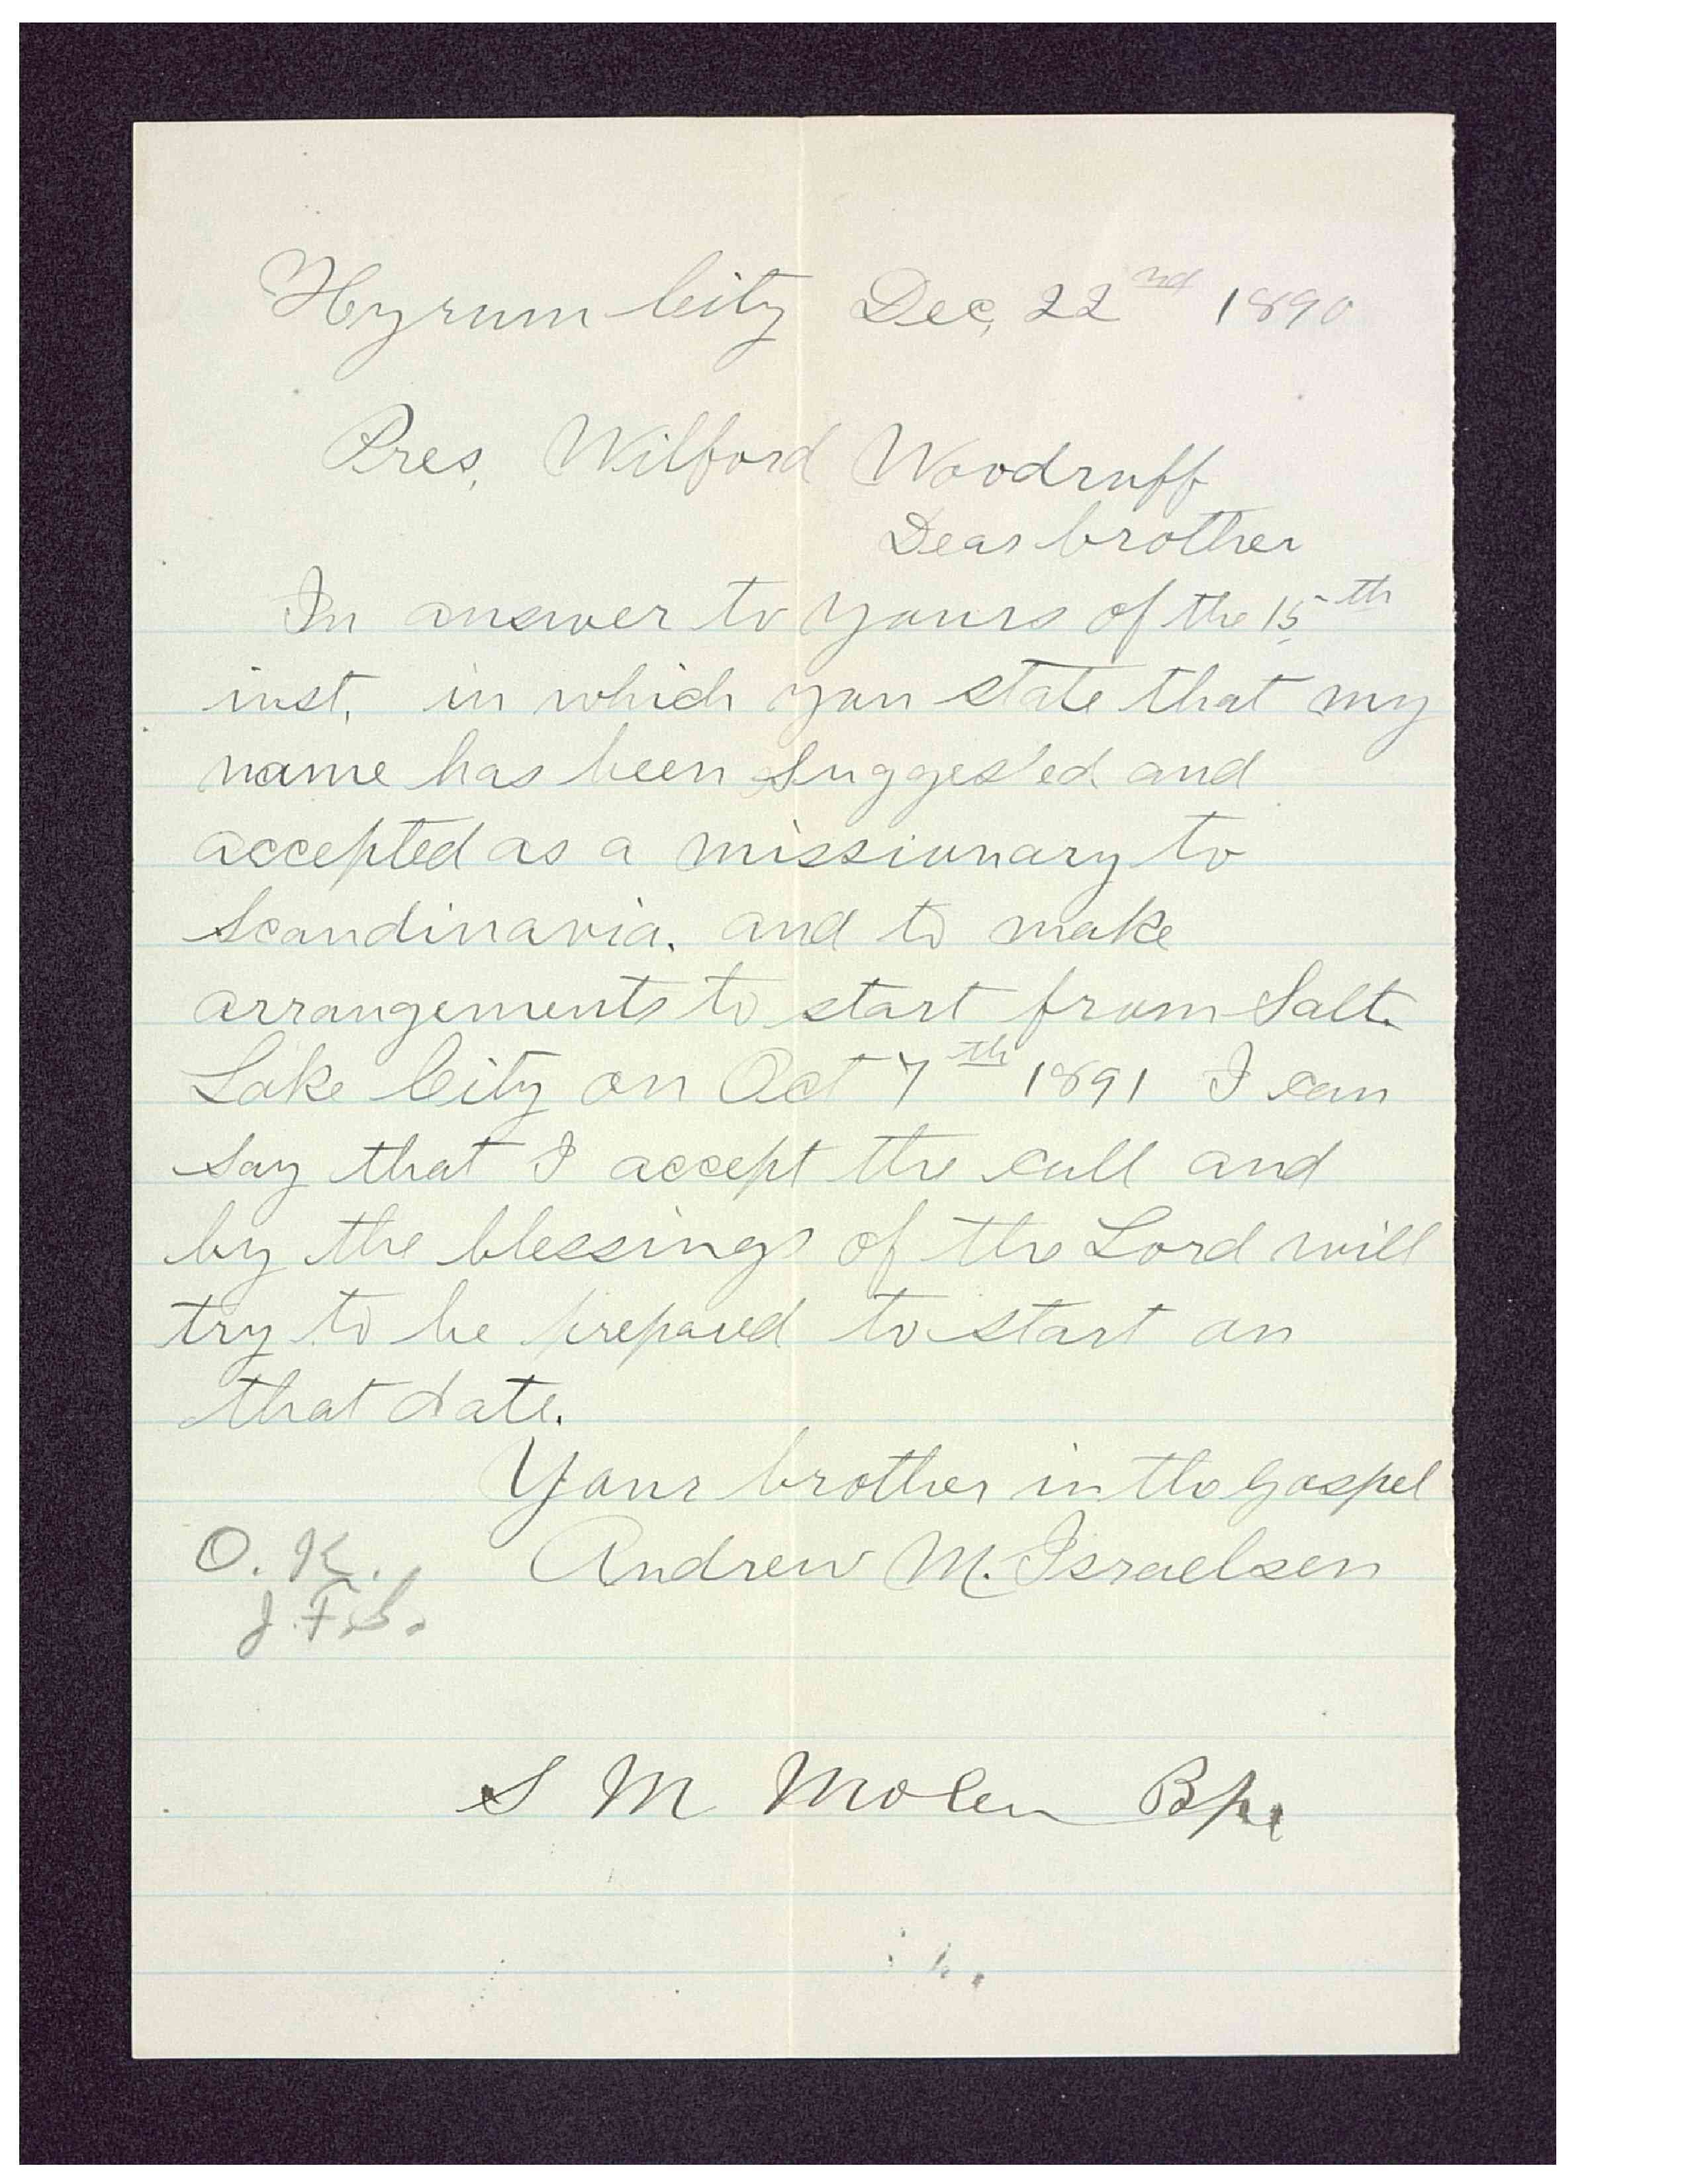 Hyrum City Dec, 22nd 1890
Pres, Wilford Woodruff
Dear brother
In answer to yours of the 15th
inst, in which you state that my
name has been Sugges'ed and
accepted as a missionary to
Scandinavia, and to make
arrangements to start from Salt
Lake City on Oct 7th 1891 I can
say that I accept the call and
by the blessings of the Lord will
try to be prepared to start on
that date.
Your brother in the Gospel
Andrew M. Israelsen
O. K.
J. F. S.
S M Molen Bp